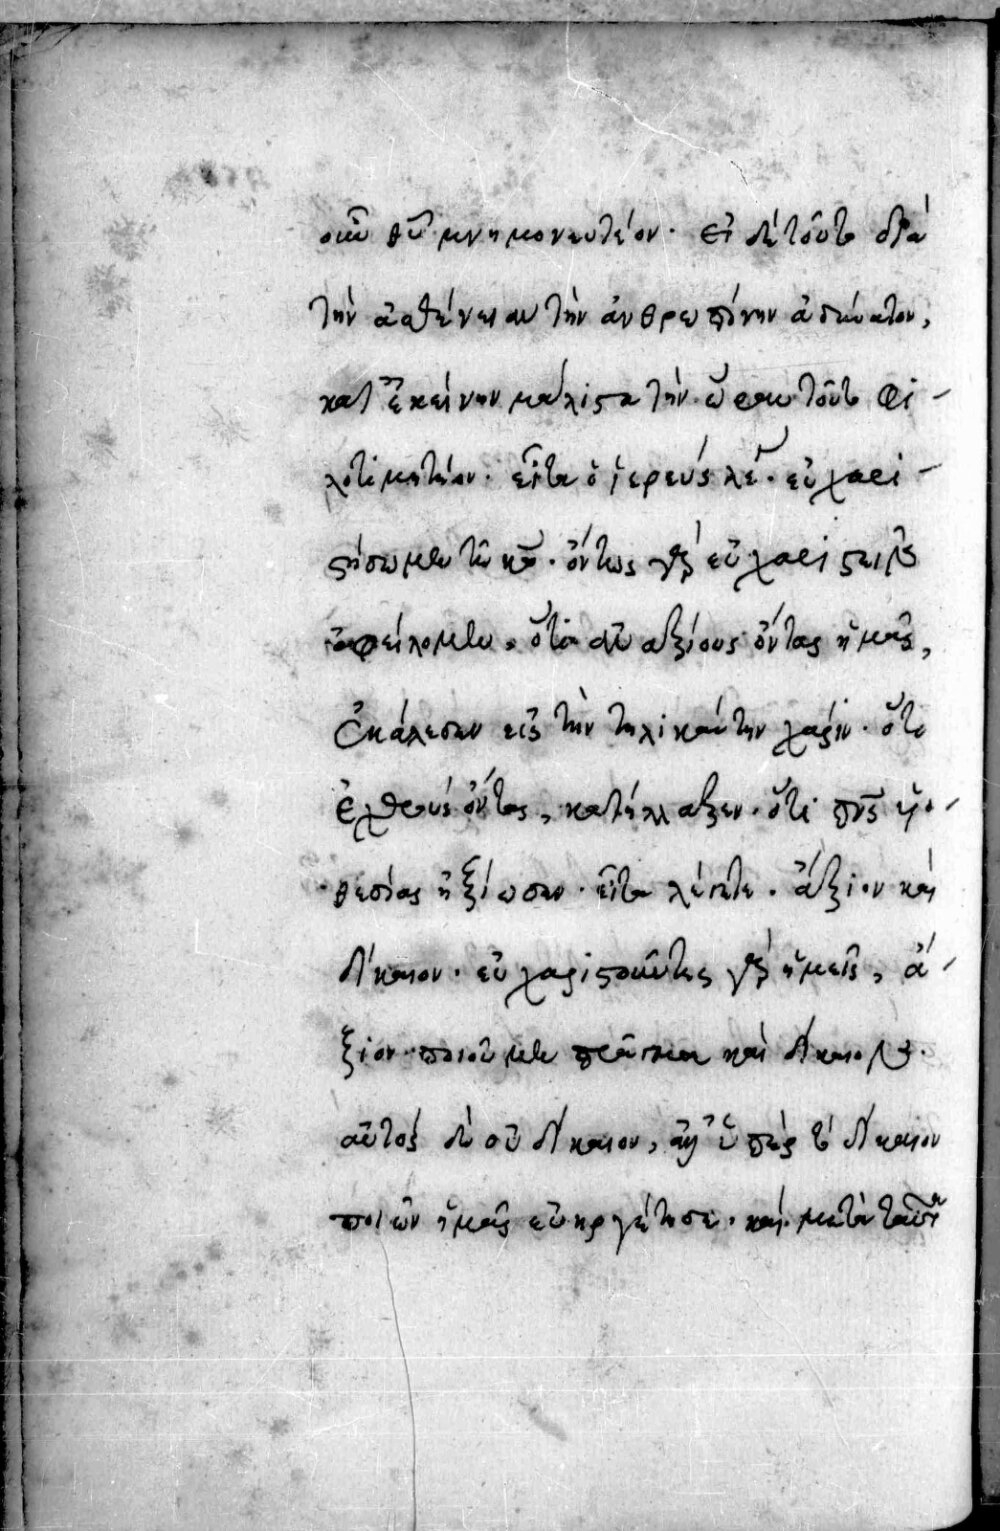 οῦν θῦ μνημονευτέον· εἰ δὲ τοῦτο διὰ
τὴν ἀσθένειαν τὴν ἀνθρωπίνην ἀδύνατον,
κατ' ἐκείνην μάλιστα τὴν ὥραν τοῦτο φι-
λοτιμητέον· εἶτα ὁ ἱερεύς λέ· εὐχαρι-
στήσωμεν τῶ κω· ὄντως γὰρ εὐχαριστεῖν
ὀφείλομεν, ὅτι ἀναξίους ὄντας ἡμᾶς,
ἐκάλεσεν εἰς τὴν τηλικαύτην χάριν· ὅτι
ἐχθροὺς ὄντας, κατήλλαξεν· ὅτι πνς υἱο-
θεσίας ἠξίωσεν· εἶτα λέγετε· ἄξιον καὶ
δίκαιον· εὐχαριστοῦντες γὰρ ἡμεῖς, ἄ-
ξιον ποιοῦμεν πρᾶγμα καὶ δίκαιον·
αὐτὸς δὲ οὐ δίκαιον, ἀλλ' ὑπὲρ τὸ δίκαιον
ποιῶν ἡμᾶς εὐηργέτησε· καὶ μετὰ ταῦτα